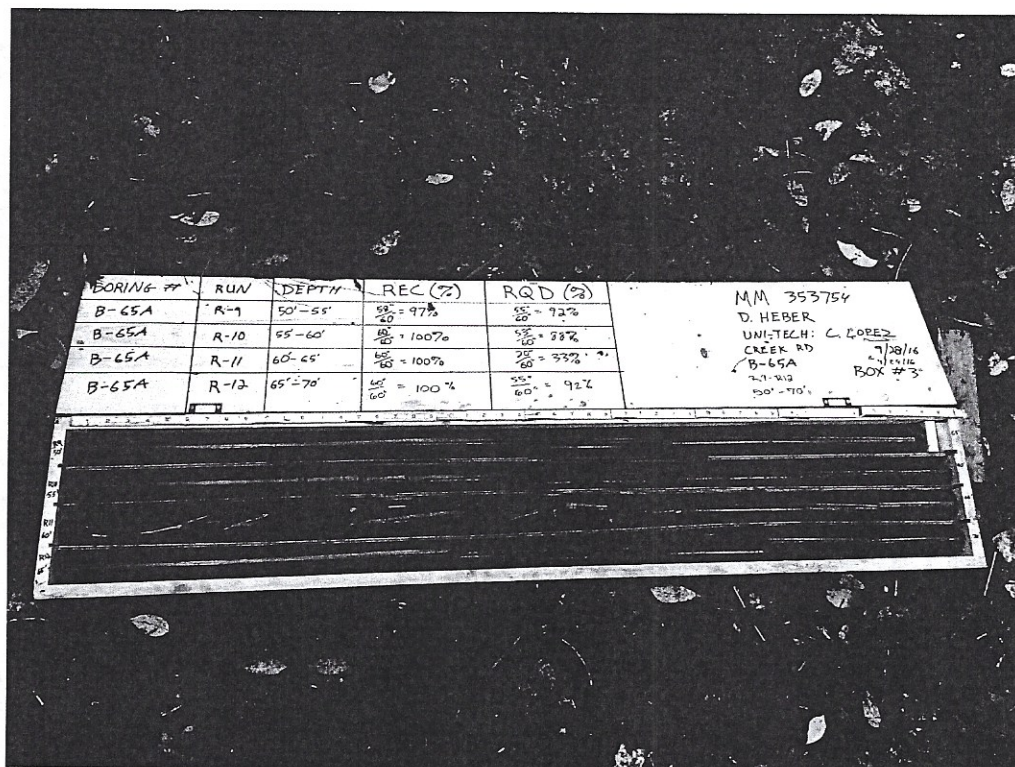 BORING # RUN DEPTH REC (%) RQD (%)
B-65A R-9 50'-55' 58"/60" = 97% 55"/60" = 92%
B-65A R-10 55'-60' 60"/60" = 100% 53"/60" = 88%
B-65A R-11 60'-65' 60"/60" = 100% 20"/60" = 33%
B-65A R-12 65'-70' 60"/60" = 100% 55"/60" = 92%
MM 353754
D. HEBER
UNI-TECH: C. LOPEZ
CREEK RD 9/28/16
B-65A
BOX #3
R9-R12
50'-70'
R10
55'
R11
60'
R12
65'